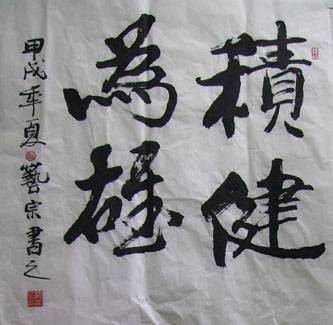 積健
為雄
甲戌年夏藝宗書之